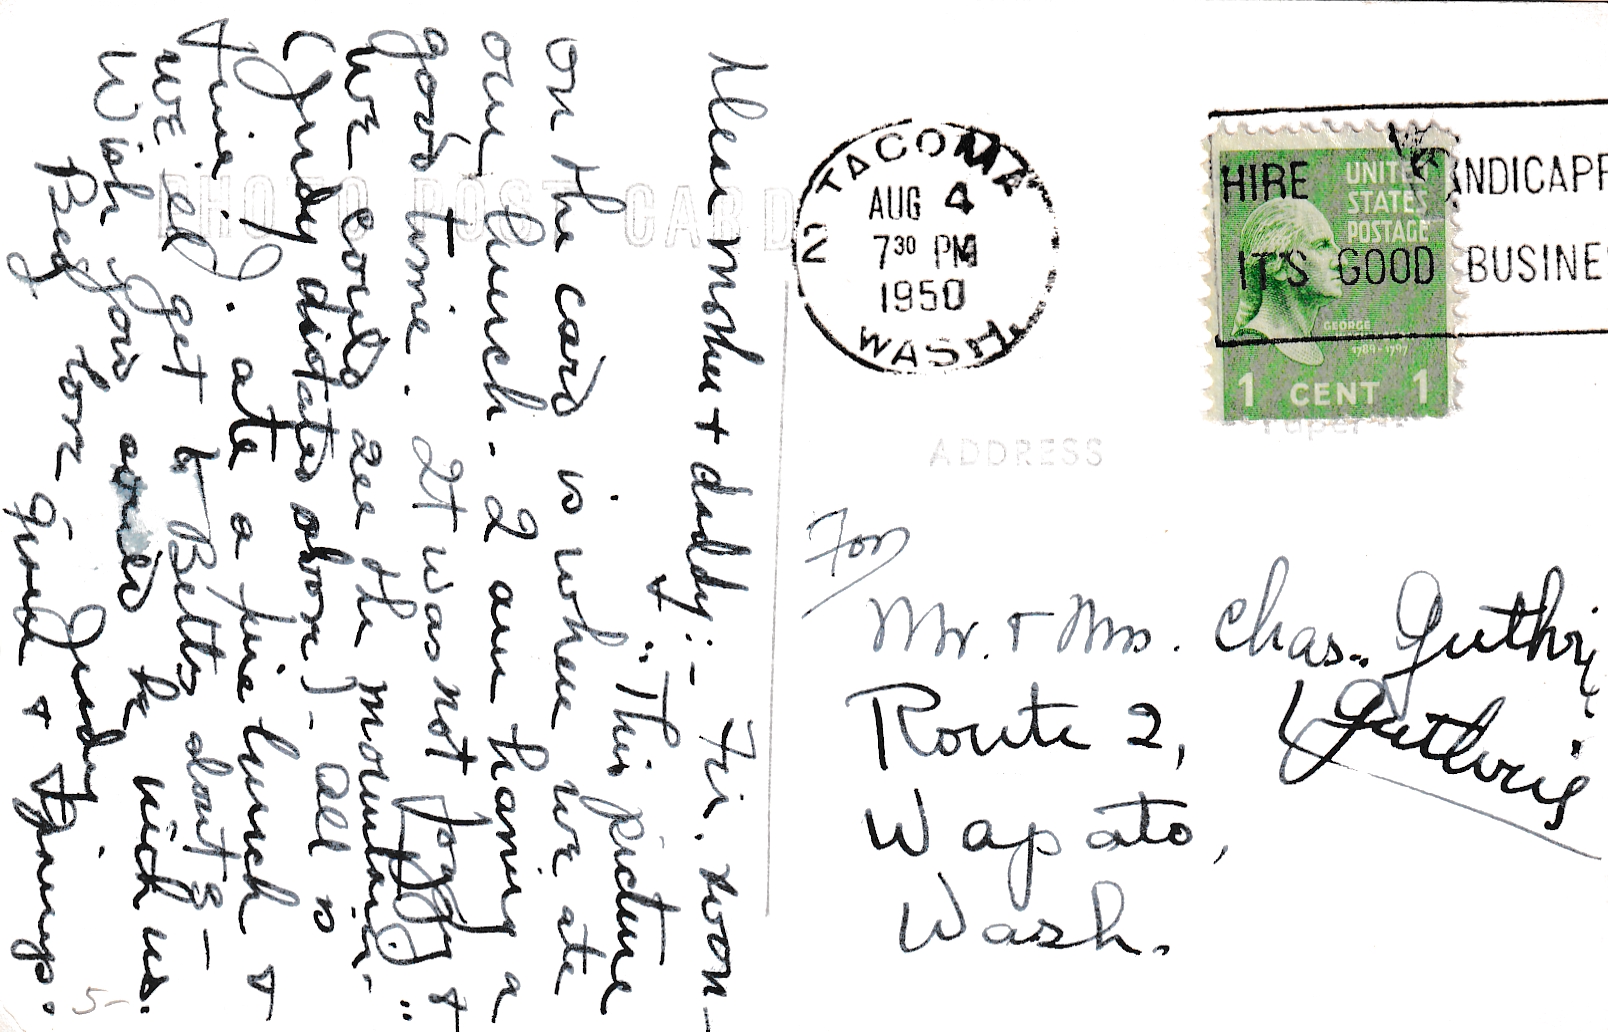 Dear Mother + daddy:- Fri. noon-
"This picture
on the card is where we ate
our lunch. I am having a
good time. It was not foggy +
we could see the mountain."
(Judy dictated above) - all is
fine). ate a fine lunch +
we'll get to Betty about 3-
Wish you could be with us.
Big love Judy
Grand + Gramps.
5-
PHOTO POST CARD
TACOMA
2
AUG 4
7 30 PM
1950
WASH.
HIRE HANDICAPP
IT'S GOOD BUSINE
UNITED
STATES
POSTAGE
GEORGE
1789-1797
1 CENT 1
ADDRESS
For
Mr. + Mrs. Chas. Guthri
(Guthrie
Route 2,
Wapato,
Wash.